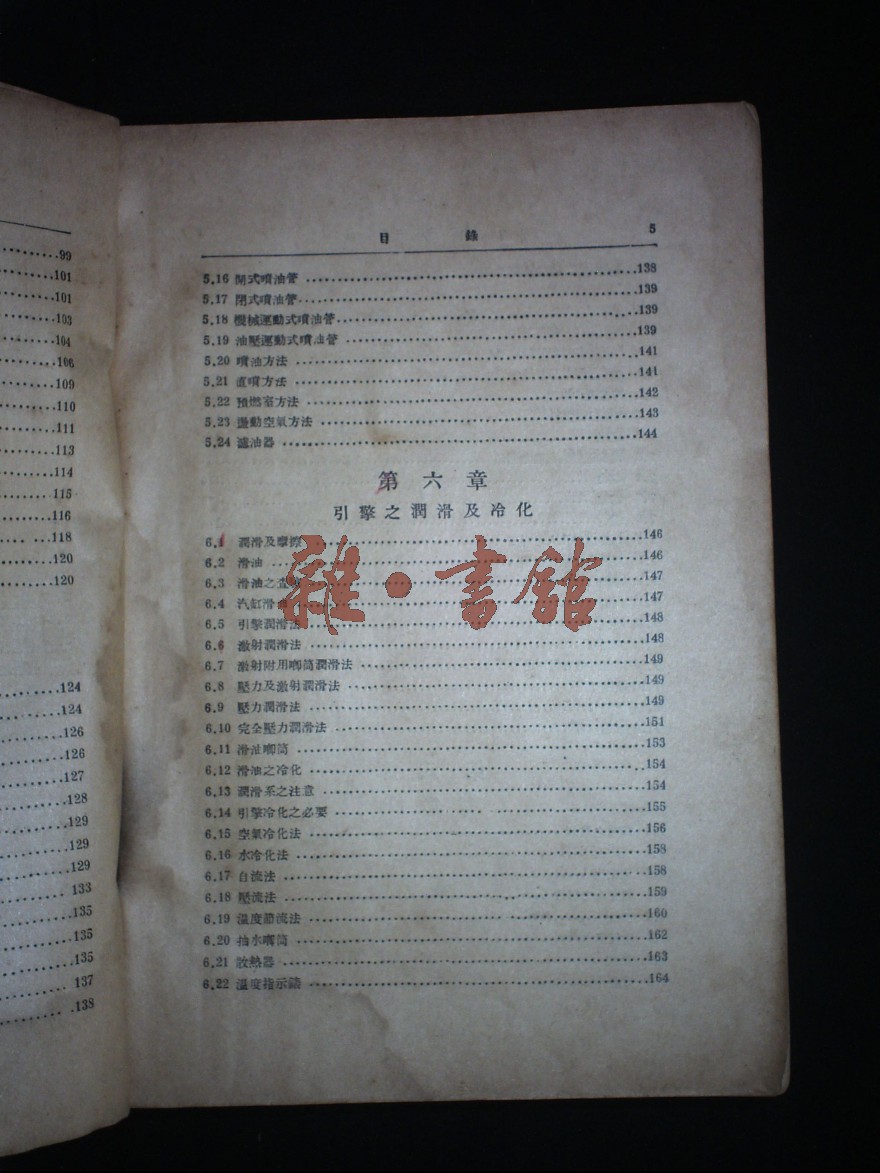 99
101
101
103
104
106
109
110
111
113
114
115
116
118
120
120
124
124
126
126
127
128
129
129
129
133
135
135
135
137
138
目 錄 5
5.16 開式噴油管 138
5.17 閉式噴油管 139
5.18 機械運動式噴油管 139
5.19 油壓運動式噴油管 139
5.20 噴油方法 141
5.21 直噴方法 141
5.22 預燃室方法 142
5.23 動空氣方法 143
5.24 濾油器 144
第六章
引擎之潤滑及冷化
6.1 潤滑及摩擦 146
6.2 滑油 146
6.3 滑油之 147
6.4 汽缸滑 147
6.5 引擎潤滑法 148
6.6 激射潤滑法 148
6.7 激射附用唧筒潤滑法 149
6.8 壓力及激射潤滑法 149
6.9 壓力潤滑法 149
6.10 完全壓力潤滑法 151
6.11 滑油唧筒 153
6.12 滑油之冷化 154
6.13 潤滑系之注意 154
6.14 引擎冷化之必要 155
6.15 空氣冷化法 156
6.16 水冷化法 158
6.17 自流法 158
6.18 壓流法 159
6.19 溫度節流法 160
6.20 抽水唧筒 162
6.21 散熱器 163
6.22 溫度指示錶 164
雜·書館